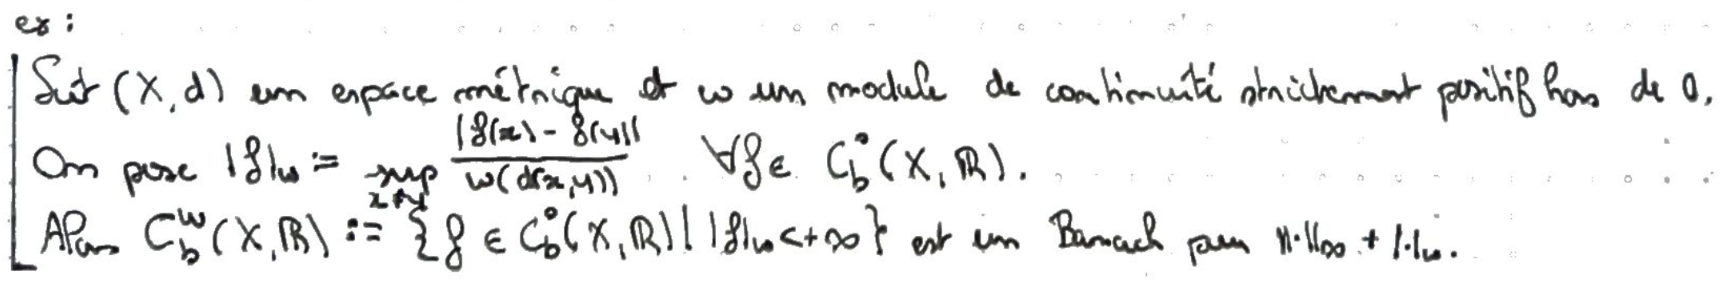 ex :
Soit (X, d) un espace métrique et ω un module de continuité strictement positif hors de 0.
On pose |f|ω := sup_{x≠y} |f(x) - f(y)| / ω(d(x,y)) . ∀f ∈ C_b^0(X, ℝ).
Alors C_b^ω(X, ℝ) := {f ∈ C_b^0(X, ℝ) | |f|ω < +∞} est un Banach pour ||·||∞ + |·|ω.